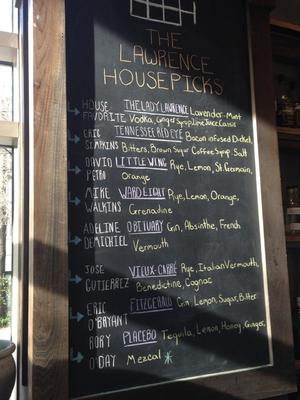 THE
LAWRENCE
HOUSEPICKS
HOUSE THE LADY LAWRENCE Lavender-Mint
FAVORITE Vodka, Ginger Syrup, Lime Juice, Cassis
ERIC TENNESSEE RED EYE Bacon infused Dickel,
SIMPKINS Bitters, Brown Sugar Coffee Syrup, Salt
DAVID LITTLE WING Rye, Lemon, St. Germain,
PETRO Orange
MIKE WARD EIGHT Rye, Lemon, Orange,
WALKINS Grenadine
ADELINE OBITUARY Gin, Absinthe, French
DEMICHIEL Vermouth
JOSE VIEUX-CARRÉ Rye, Italian Vermouth,
GUTIERREZ Benedictine, Cognac
ERIC FITZGERALD Gin, Lemon, Sugar, Bitter
O'BRYANT
RORY PLACEBO Tequila, Lemon, Honey, Ginger,
O'DAY Mezcal *